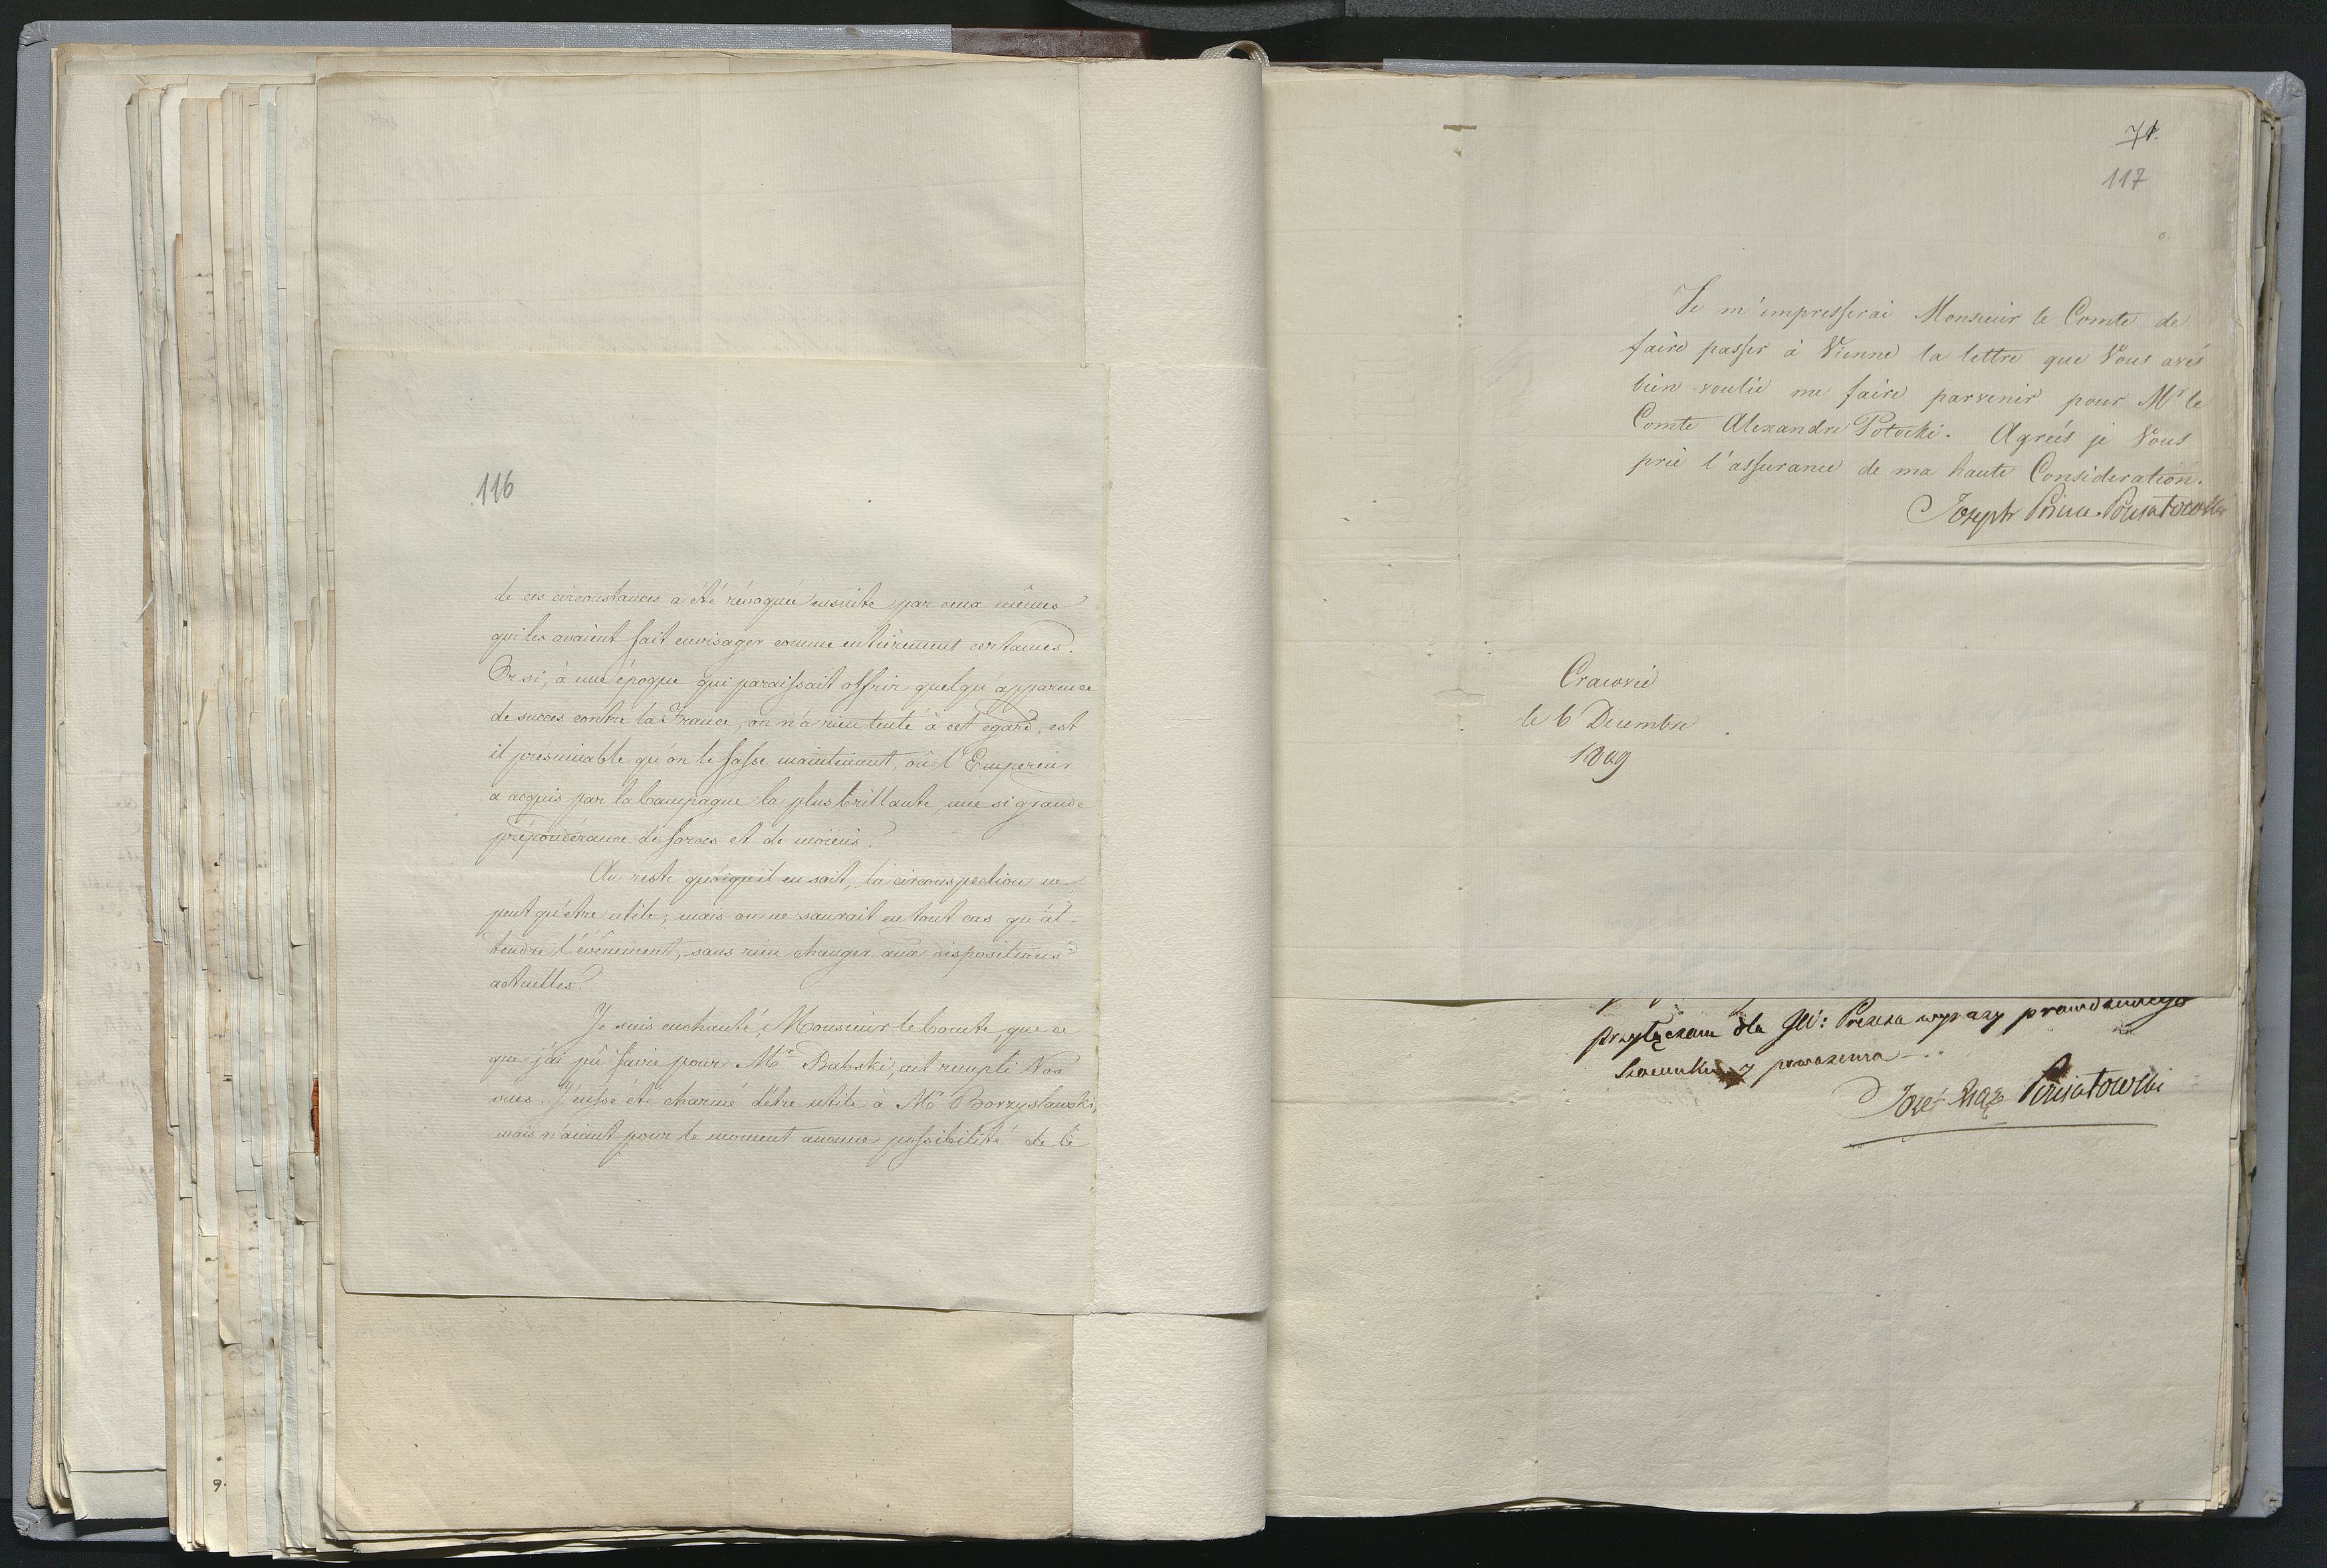 116
de ces circonstances a été révoquée ensuite par ceux mêmes
qui les avaient fait envisager comme entièrement certaines.
Or si, à une époque qui paraissait offrir quelqu'apparence
de succès contre la France, on n'a rien tenté à cet égard, est
il présumable qu'on le fasse maintenant, où l'Empereur
a acquis par la Campagne la plus brillante, une si grande
prépondérance de forces et de moïens.
Au reste quoiqu'il en soit, la circonspection ne
peut qu'être utile, mais on ne saurait en tout cas qu'at-
tendre l'évènement, sans rien changer aux dispositions
actuelles.
Je suis enchanté, Monsieur le Comte, que ce
que j'ai pû faire pour Mr Babski, ait rempli Vos
vues. J'eusse été charmé d'être utile à Mr Borzysławski,
mais n'aiant pour le moment aucune possibilité de le
71.
117
Je m'impresserai Monsieur le Comte de
faire passer à Vienne la lettre que Vous avés
bien voulu me faire parvenir pour Mr le
Comte Alexandre Potocki. Agréés je Vous
prie l'assurance de ma haute Consideration.
Joseph Prince Poniatowski
Cracovie
le 6 Decembre
1809
przyłączam dla JW: Prezesa wyrazy prawdziwego
Szacunku y poważenia
Józef Xiąże Poniatowski
9.